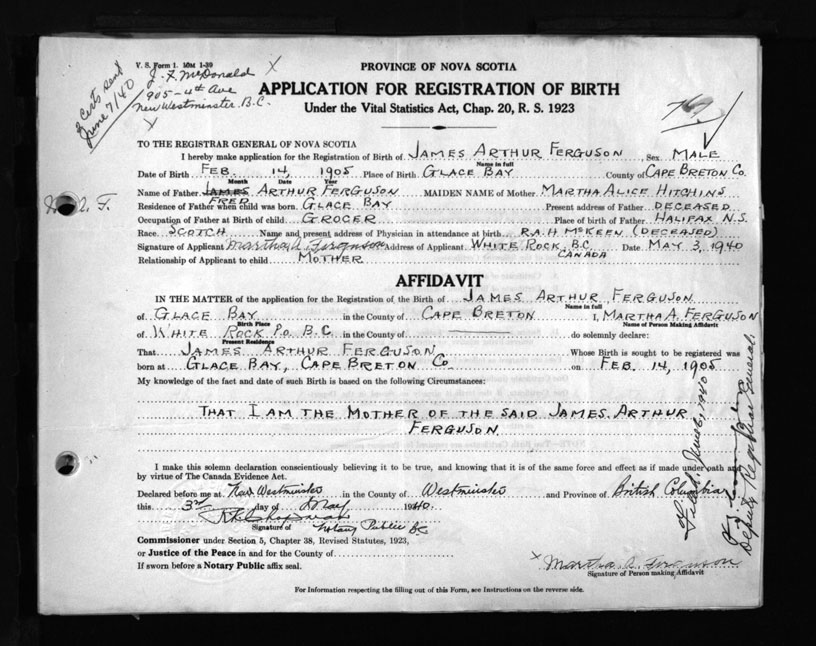 V. S. Form 1. 10M 1-39
2 Certs sent
June 7/40
J. F. McDonald
905-4th Ave
New Westminster. B.C.
PROVINCE OF NOVA SCOTIA
APPLICATION FOR REGISTRATION OF BIRTH
Under the Vital Statistics Act, Chap. 20, R. S. 1923
TO THE REGISTRAR GENERAL OF NOVA SCOTIA
I hereby make application for the Registration of Birth of JAMES ARTHUR FERGUSON Sex MALE
Name in full
Date of Birth FEB. 14, 1905 Place of Birth GLACE BAY County of CAPE BRETON CO.
Month Date Year
Name of Father JAMES ARTHUR FERGUSON MAIDEN NAME of Mother MARTHA ALICE HITCHINS
FRED
Residence of Father when child was born GLACE BAY Present address of Father DECEASED
Occupation of Father at Birth of child GROCER Place of birth of Father HALIFAX N.S.
Race SCOTCH Name and present address of Physician in attendance at birth R.A.H. MCKEEN (DECEASED)
Signature of Applicant Martha A Ferguson Address of Applicant WHITE ROCK, B.C. Date MAY 3, 1940
CANADA
Relationship of Applicant to child MOTHER
AFFIDAVIT
IN THE MATTER of the application for the Registration of the Birth of JAMES ARTHUR FERGUSON
Name in full
of GLACE BAY in the County of CAPE BRETON I, MARTHA A. FERGUSON
Birth Place Name of Person Making Affidavit
of WHITE ROCK P.O. B.C. in the County of do solemnly declare:
Present Residence
That JAMES ARTHUR FERGUSON Whose Birth is sought to be registered was
born at GLACE BAY, CAPE BRETON CO. on FEB. 14, 1905
My knowledge of the fact and date of such Birth is based on the following Circumstances:
THAT I AM THE MOTHER OF THE SAID JAMES ARTHUR
FERGUSON.
I make this solemn declaration conscientiously believing it to be true, and knowing that it is of the same force and effect as if made under oath and
by virtue of The Canada Evidence Act.
Declared before me at New Westminster in the County of Westminster and Province of British Columbia
this 3rd day of May 1940.
Signature of Notary Public B.C.
Commissioner under Section 5, Chapter 38, Revised Statutes, 1923,
or Justice of the Peace in and for the County of
If sworn before a Notary Public affix seal.
Martha A. Ferguson
Signature of Person making Affidavit
For Information respecting the filling out of this Form, see Instructions on the reverse side.
Filed: June 6, 1940
Deputy Registrar General.